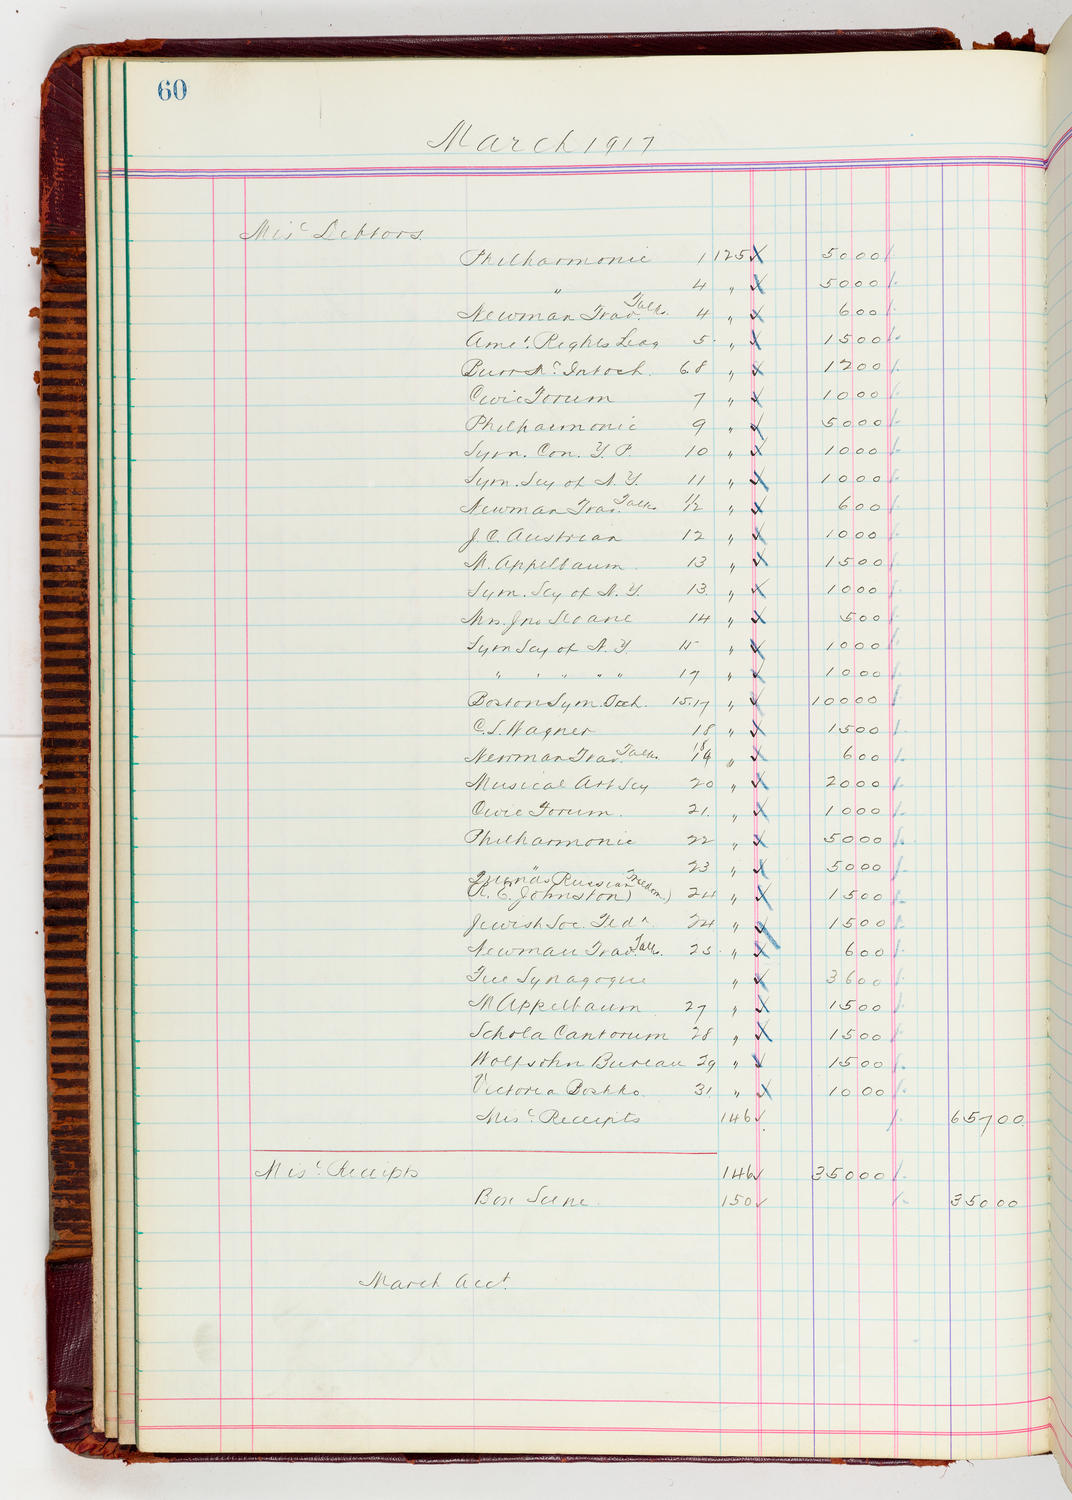 60
March 1917
Misc Debtors
Philharmonic 1 125 5000
" 4 " 5000
Newman Trav. Talks 4 " 600
Amer. Rights Leag 5 " 1500
Burr McIntosh. 6.8 " 1200
Civic Forum 7 " 1000
Philharmonic 9 " 5000
Sym. Con. Y. P. 10 " 1000
Sym. Scy of N. Y. 11 " 1000
Newman Trav. Talks 11/12 " 600
J. C. Austrian 12 " 1000
M. Appelbaum. 13 " 1500
Sym. Scy of N. Y. 13. " 1000
Mrs. Jno Sloane 14 " 500
Sym Scy of N. Y. 15 " 1000
" " " " " 17 " 1000
Boston Sym. Orch. 15.17 " 10000
C. S. Wagner 18 " 1500
Newman Trav. Talks. 18/19 " 600
Musical Art Scy 20 " 2000
Civic Forum. 21. " 1000
Philharmonic 22 " 5000
" 23 " 5000
Friends Russian Freedom
(R. E. Johnston) 24 " 1500
Jewish Soc. Fedn 24 " 1500
Newman Trav. Talks. 25 " 600
Free Synagogue " 3600
M Appelbaum 27 " 1500
Schola Cantorum 28 " 1500
Wolfsohn Bureau 29 " 1500
Victoria Boshko. 31. " 1000
Misc. Receipts 146 65700
Misc. Receipts 146 35000
Box Scene. 150 35000
March Acct.